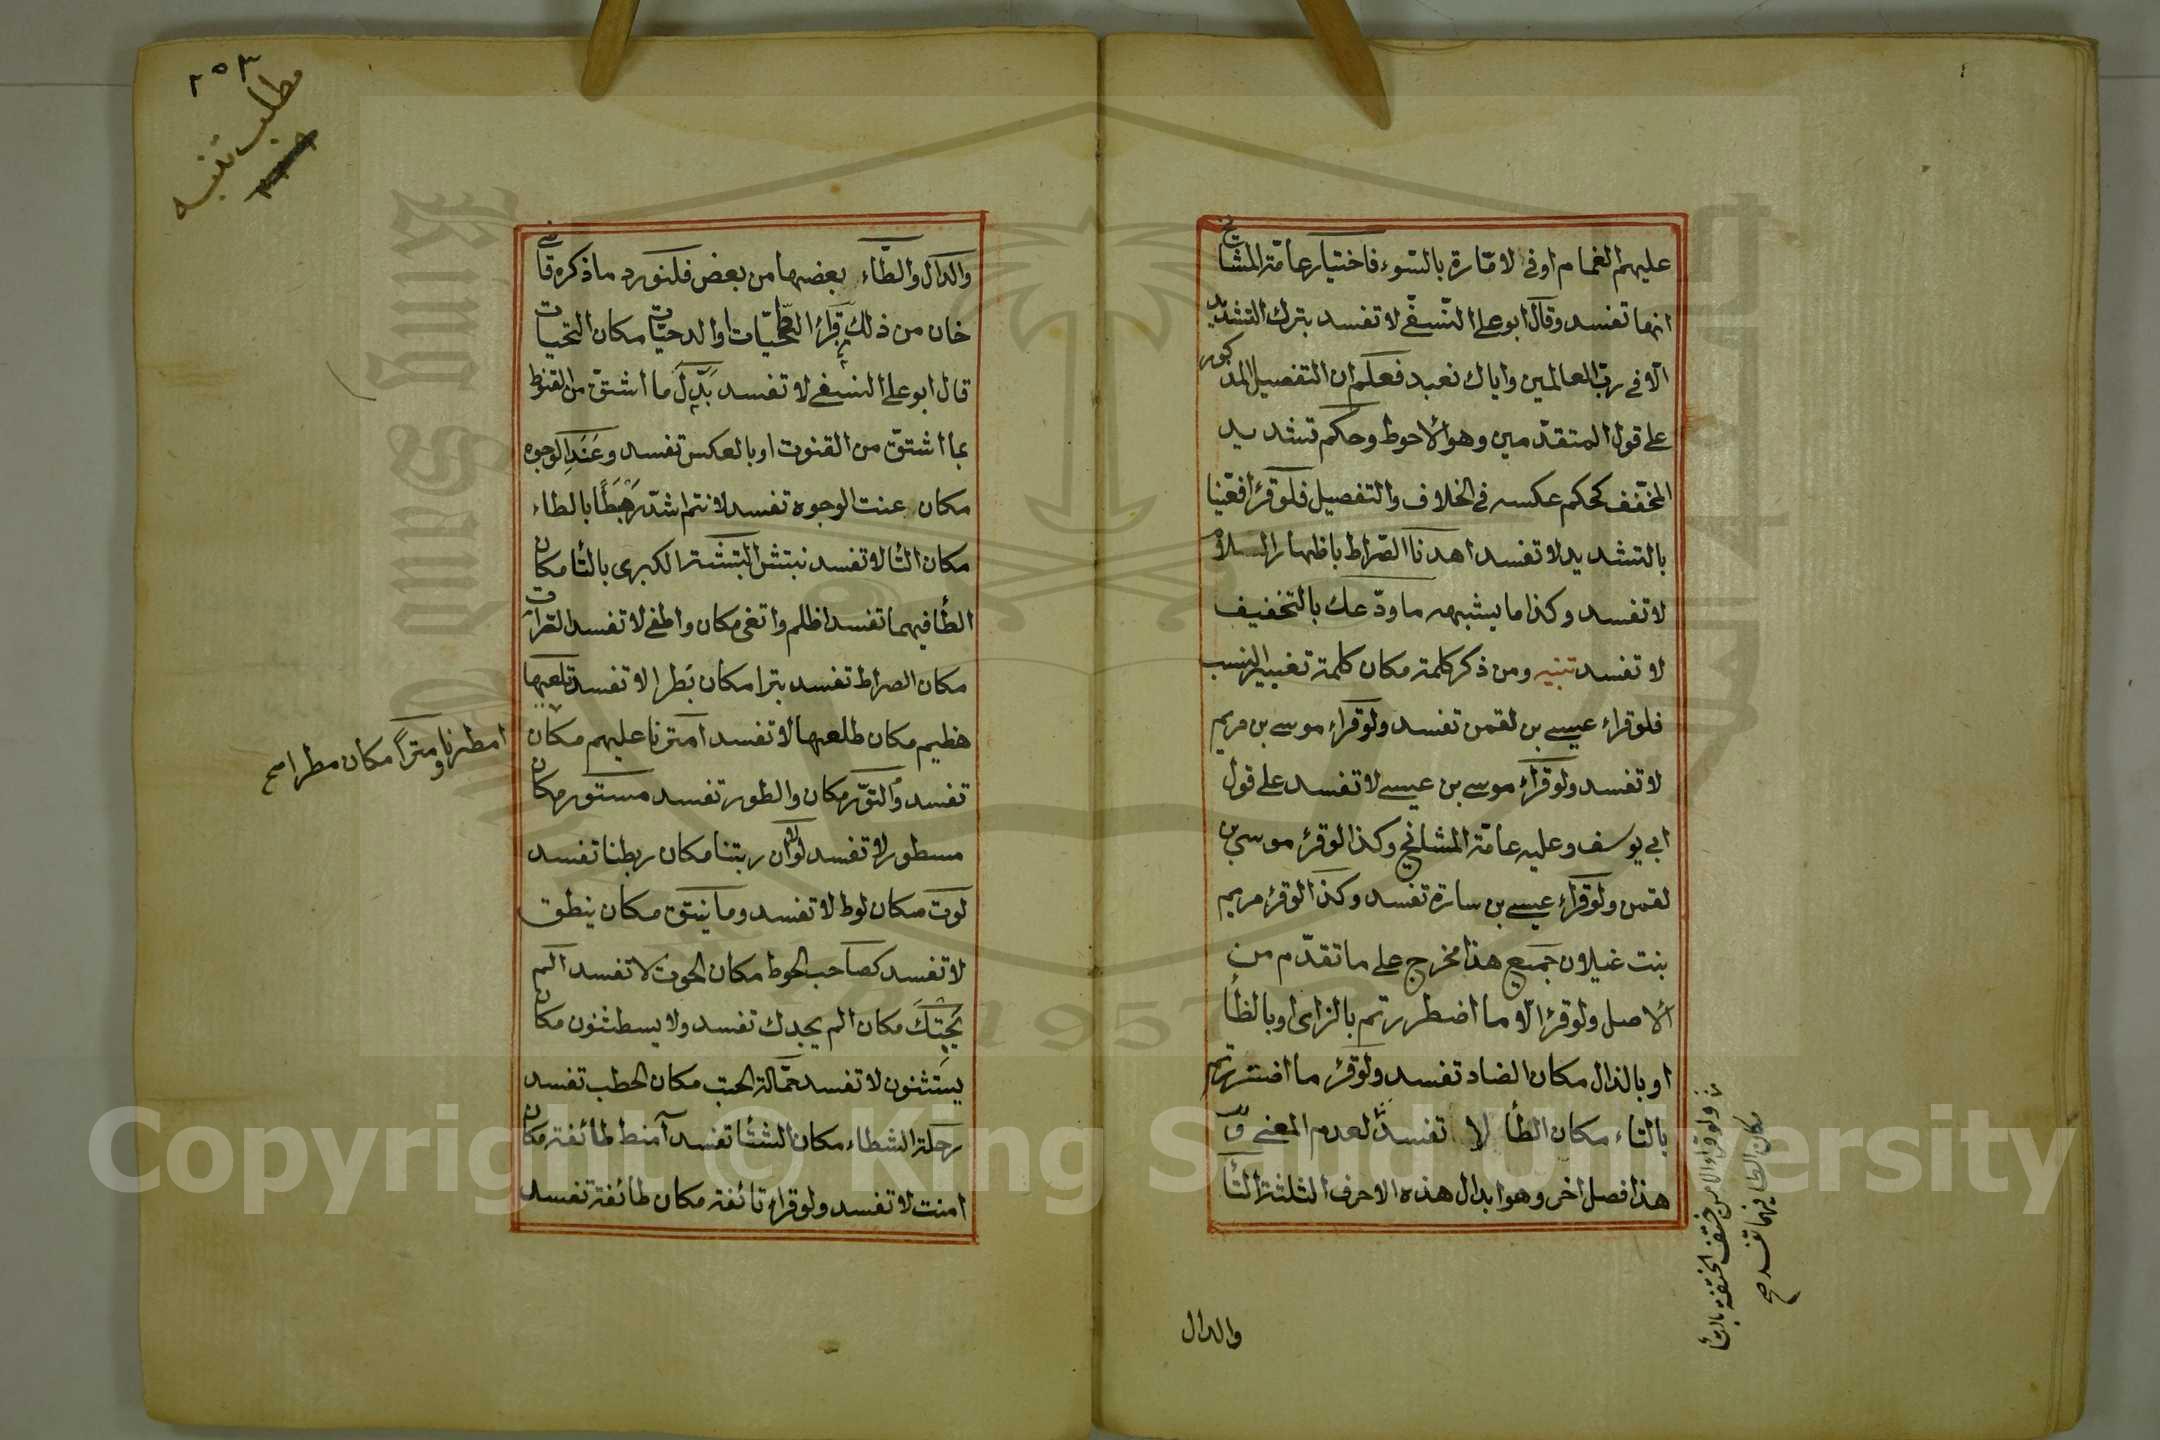 عليهم الغمام او فى لامّارة بالسّوء فاختيار عامّة المشايخ
انها تفسد وقال ابو على النّسفّے لا تفسد بترك التشديد
الّا فى ربّ العالمين واياك نعبد فعلم ان التفصيل المذكور
على قول المتقدّمين وهو الاحوط وحكم تشديد
المخفّف كحكم عكسه فى الخلاف والتفصيل فلو قرئ افعّينا
بالتشديد لا تفسد اهدنا الصّراط باظهار اللام
لا تفسد وكذا ما يشبهه ما ودّعك بالتخفيف
لا تفسد تنبيه ومن ذكر كلمة مكان كلمة تغيير النسب
فلو قراء عيسے بن لقمن تفسد ولو قراء موسے بن مريم
لا تفسد ولو قراء موسے بن عيسے لا تفسد على قول
ابى يوسف وعليه عامّة المشائخ وكذا لو قرئ موسى بن
لقمن ولو قراء عيسے بن سارة تفسد وكذا لو قرئ مريم
بنت غيلان جميع هذا مخرج على ما تقدّم من
الاصل ولو قرئ الّا ما اضطررتم بالزاى او بالظأ
او بالذال مكان الضاد تفسد ولو قرئ ما اضتررتم
بالتاء مكان الطأ لا تفسد لعدم المعنى
هذا فصل اخر وهو ابدال هذه الاحرف الثلثة التأ
مكان الطا فيهما تفسد صح
والدال
٢٥٣
مطلب تنبيه
والدال والطّاء بعضها من بعض فلنورد ما ذكره قاضى
خان من ذلك قرأ الطحيّات او الدحيّات مكان التحيات
قال ابو على النسفى لا تفسد بَدَّلَ ما اشتقّ من القنوط
بما اشتقّ من القنوت او بالعكس تفسد وعَنَدِ الوجوه
مكان عنت الوجوه تفسد لانتم اشدّ رَهْبَطًا بالطاء
مكان التا لا تفسد نبتش البتشة الكبرى بالتا مكان
الطأ فيهما تفسد اظلم واتغى مكان واطغى لا تفسد التّرات
مكان الصراط تفسد بترا مكان بَطرا لا تفسد تلعها
هظيم مكان طلعها لا تفسد امترنا عليهم مكان
امطرنا ومترًا مكان مطرا صح
تفسد والتوّر مكان والطور تفسد مستور مكان
مسطور لا تفسد لولا ان ربتنا مكان ربطنا تفسد
لوت مكان لوط لا تفسد وما ينتق مكان ينطق
لا تفسد كصاحب الحوط مكان الحوت لا تفسد الم
يَجِتكَ مكان الم يجدك تفسد ولا يسطثنون مكان
يستثنون لا تفسد حمّالة الحتب مكان الحطب تفسد
رحلة الشطاء مكان الشتا تفسد آمنط طائفة مكان
امنت لا تفسد ولو قراء تائفة مكان طائفة تفسد
Copyright © King Saud University